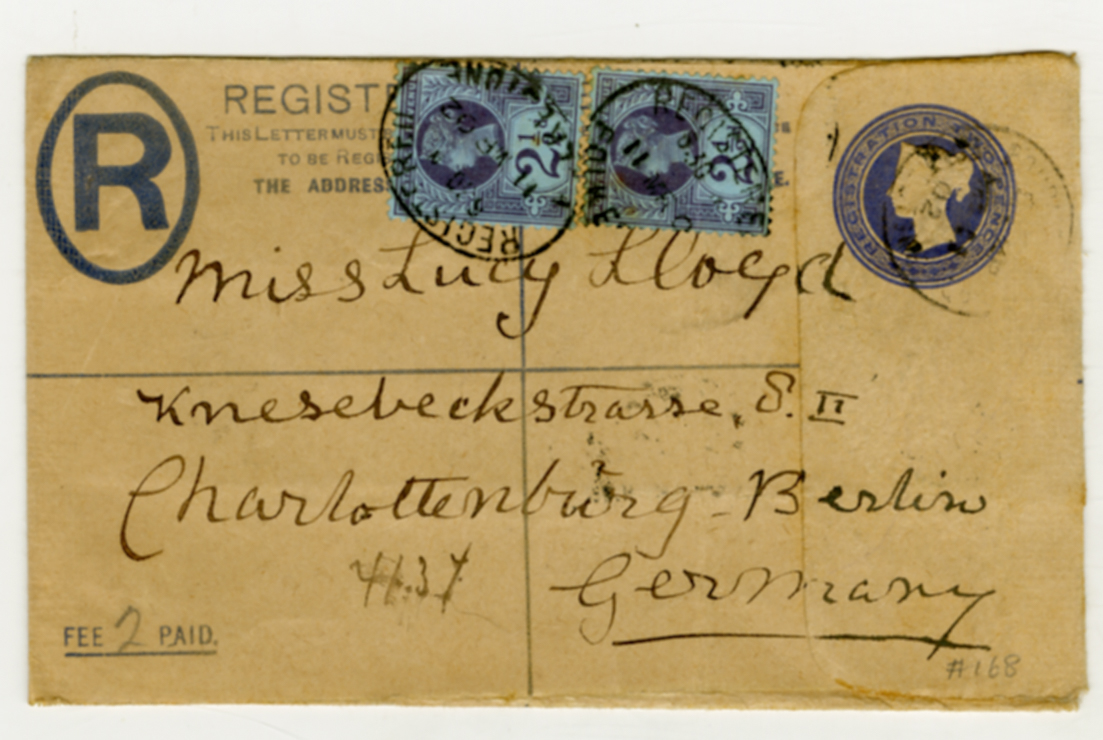 R
REGIST
THIS LETTER MUST
TO BE REGIS
THE ADDRESS
REGISTRATION TWO PENCE
Miss Lucy Lloyd
Knesebeckstrasse, 8. II
Charlottenbürg - Berlin
Germany
FEE 2 PAID.
#168